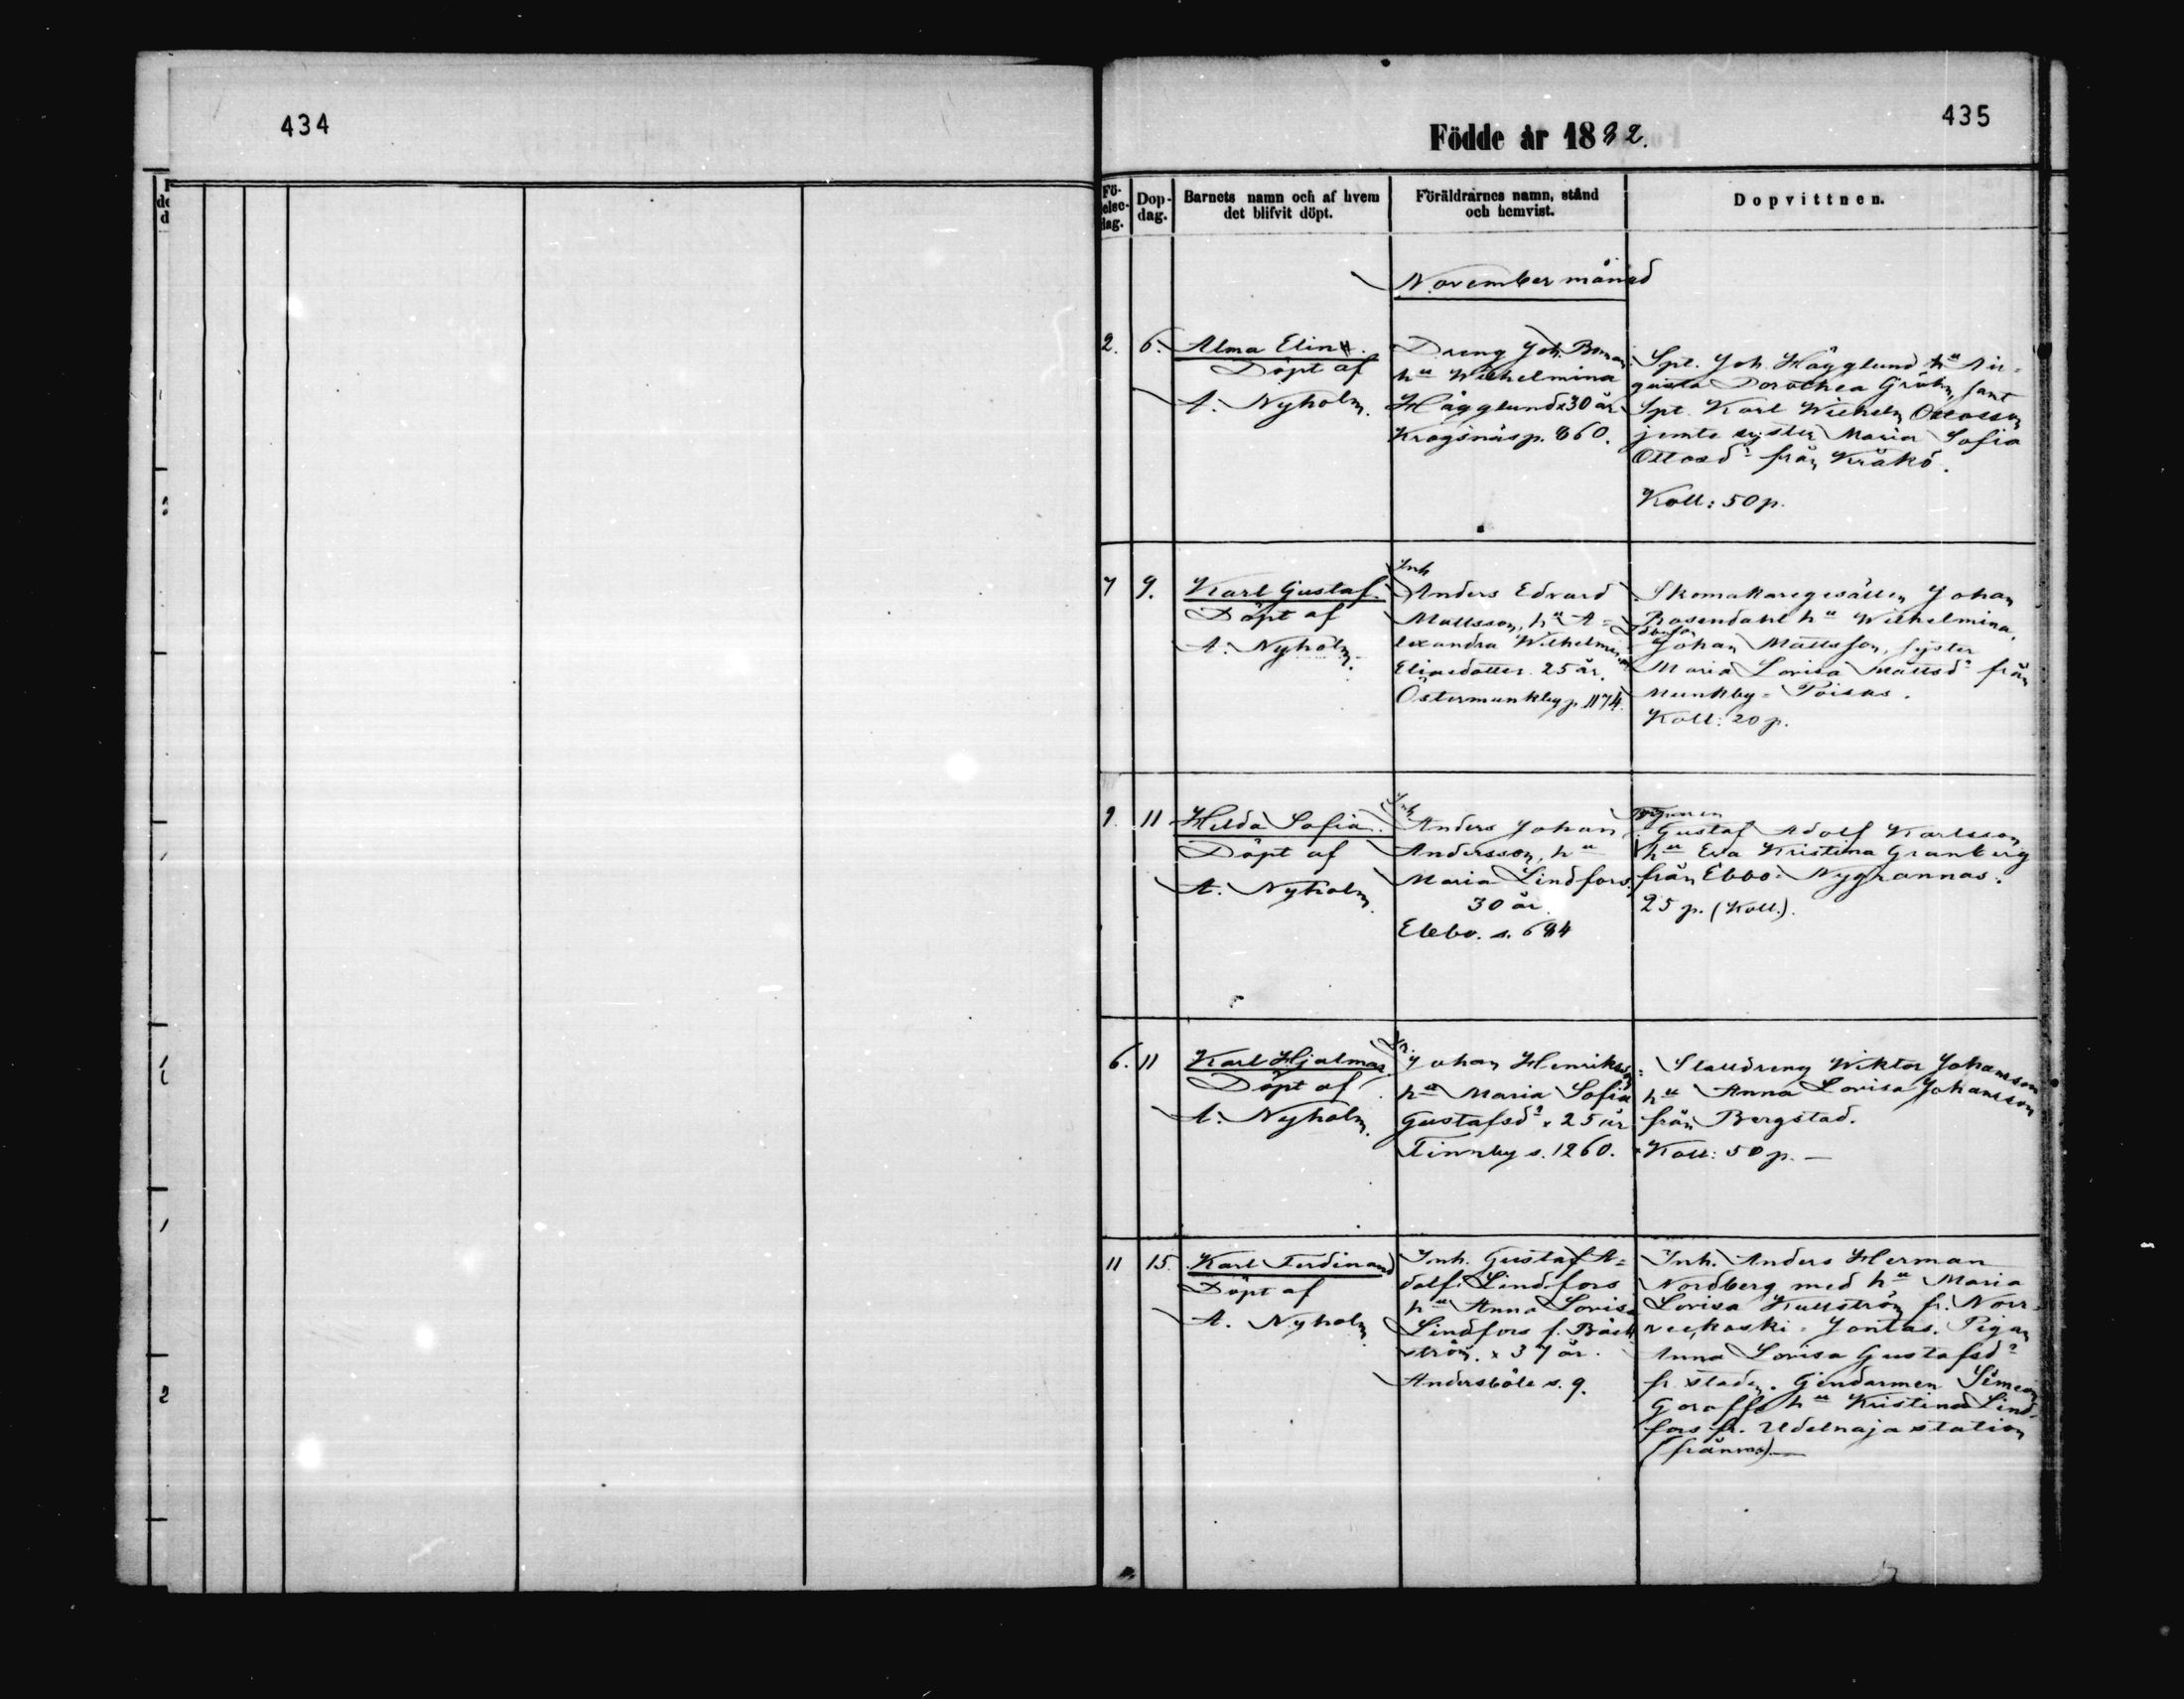 434
435
Födde år 1882.
Fö-
delse-
dag.
Dop-
dag.
Barnets namn och af hvem
det blifvit döpt.
Föräldrarnes namn, stånd
och hemvist.
Dopvittnen.
November månad
2.
6.
Alma Elin
Döpt af
A. Nyholm.
Dreng Joh. Boman
hu Wilhelmina
Hägglund x 30 år
Krogsnäs p. 860.
Spt. Joh. Hägglund hu Au-
gusta Dorothea Gröhn, samt
Spt. Karl Wilhelm Ottosson
jemte syster Maria Sofia
Ottosdr från Kråkö.
Koll: 50 p.
7
9.
Karl Gustaf.
Döpt af
A. Nyholm.
Inh
Anders Edvard
Mattsson, hu A=
lexandra Wilhelmina
Eliaedotter. 25 år.
Östermunkby p. 1174.
Skomakaregesällen Johan
Rosendahl hu Wilhelmina,
Johan Mattsson, syster
Maria Lovisa Mattsdr från
Munkby=Poisas.
Koll: 20 p.
9.
11
Hilda Sofia.
Döpt af
A. Nyholm.
Inh
Anders Johan
Andersson, hu
Maria Lindfors.
30 år
Ebbo. s. 684
Gustaf Adolf Karlsson
hu Eva Kristina Granberg
från Ebbo=Nygrannas.
25 p. (Koll.).
6.
11
Karl Hjalmar
Döpt af
A. Nyholm.
Johan Henriksson
hu Maria Sofia
Gustafsdr x 25 år
Finnby s. 1260.
Stalldreng Wiktor Johansson
hu Anna Lovisa Johansson
från Borgstad.
Koll: 50 p. —
11
15.
Karl Ferdinand
Döpt af
A. Nyholm
Inh. Gustaf A=
dolf Lindfors
hu Anna Lovisa
Lindfors f. Bäck
ström. x 37 år.
Andersböle s. 9.
Inh. Anders Herman
Nordberg med hu Maria
Lovisa Kullström fr. Norr-
veckoski=Jontas. Pigan
Anna Lovisa Gustafsdr
fr. staden. Gendarmen Simeon
Goroff hu Kristina Lind-
fors fr. Udelnaja station
(frånvar.) —